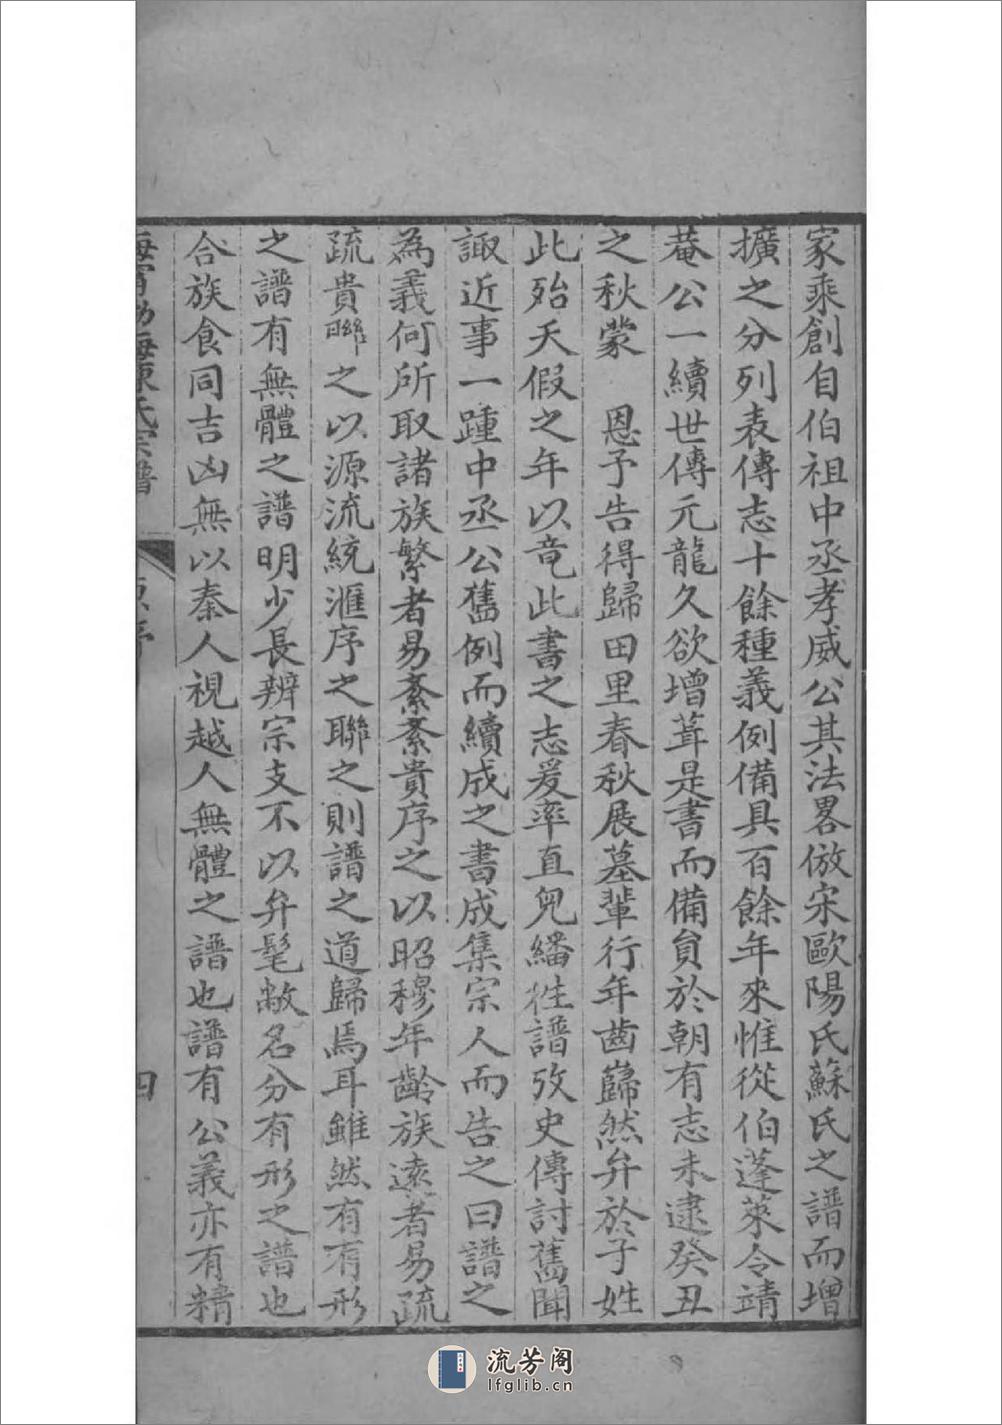 家乘創自伯祖中丞孝威公其法畧倣宋歐陽氏蘇氏之譜而增
擴之分列表傳志十餘種義例備具百餘年來惟從伯蓬萊令靖
菴公一續世傳元龍久欲增葺是書而備員於朝有志未逮癸丑
之秋蒙　恩予告得歸田里春秋展墓輩行年齒巋然弁於子姓
此殆天假之年以竟此書之志爰率直兒繙徃譜攷史傳討舊聞
諏近事一踵中丞公舊例而續成之書成集宗人而告之曰譜之
為義何所取諸族繁者易紊紊貴序之以昭穆年齡族遠者易疏
疏貴聯之以源流統滙序之聯之則譜之道歸焉耳雖然有有形
之譜有無體之譜明少長辨宗支不以弁髦敝名分有形之譜也
合族食同吉凶無以秦人視越人無體之譜也譜有公義亦有精
海寧渤海陳氏宗譜
原序
四
流芳阁
lfglib.cn